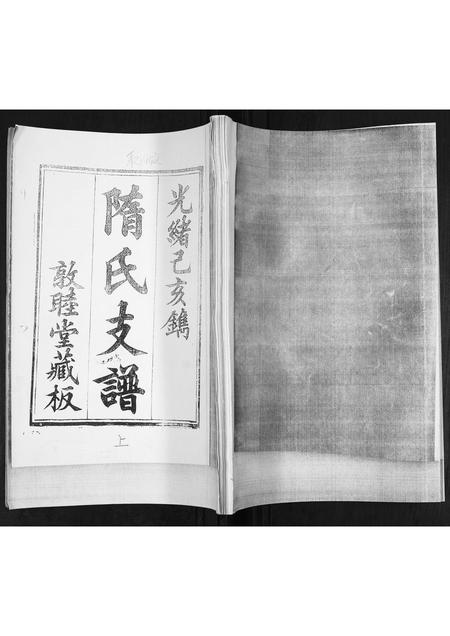 光緒己亥鐫
隋氏支譜
敦睦堂藏板
上